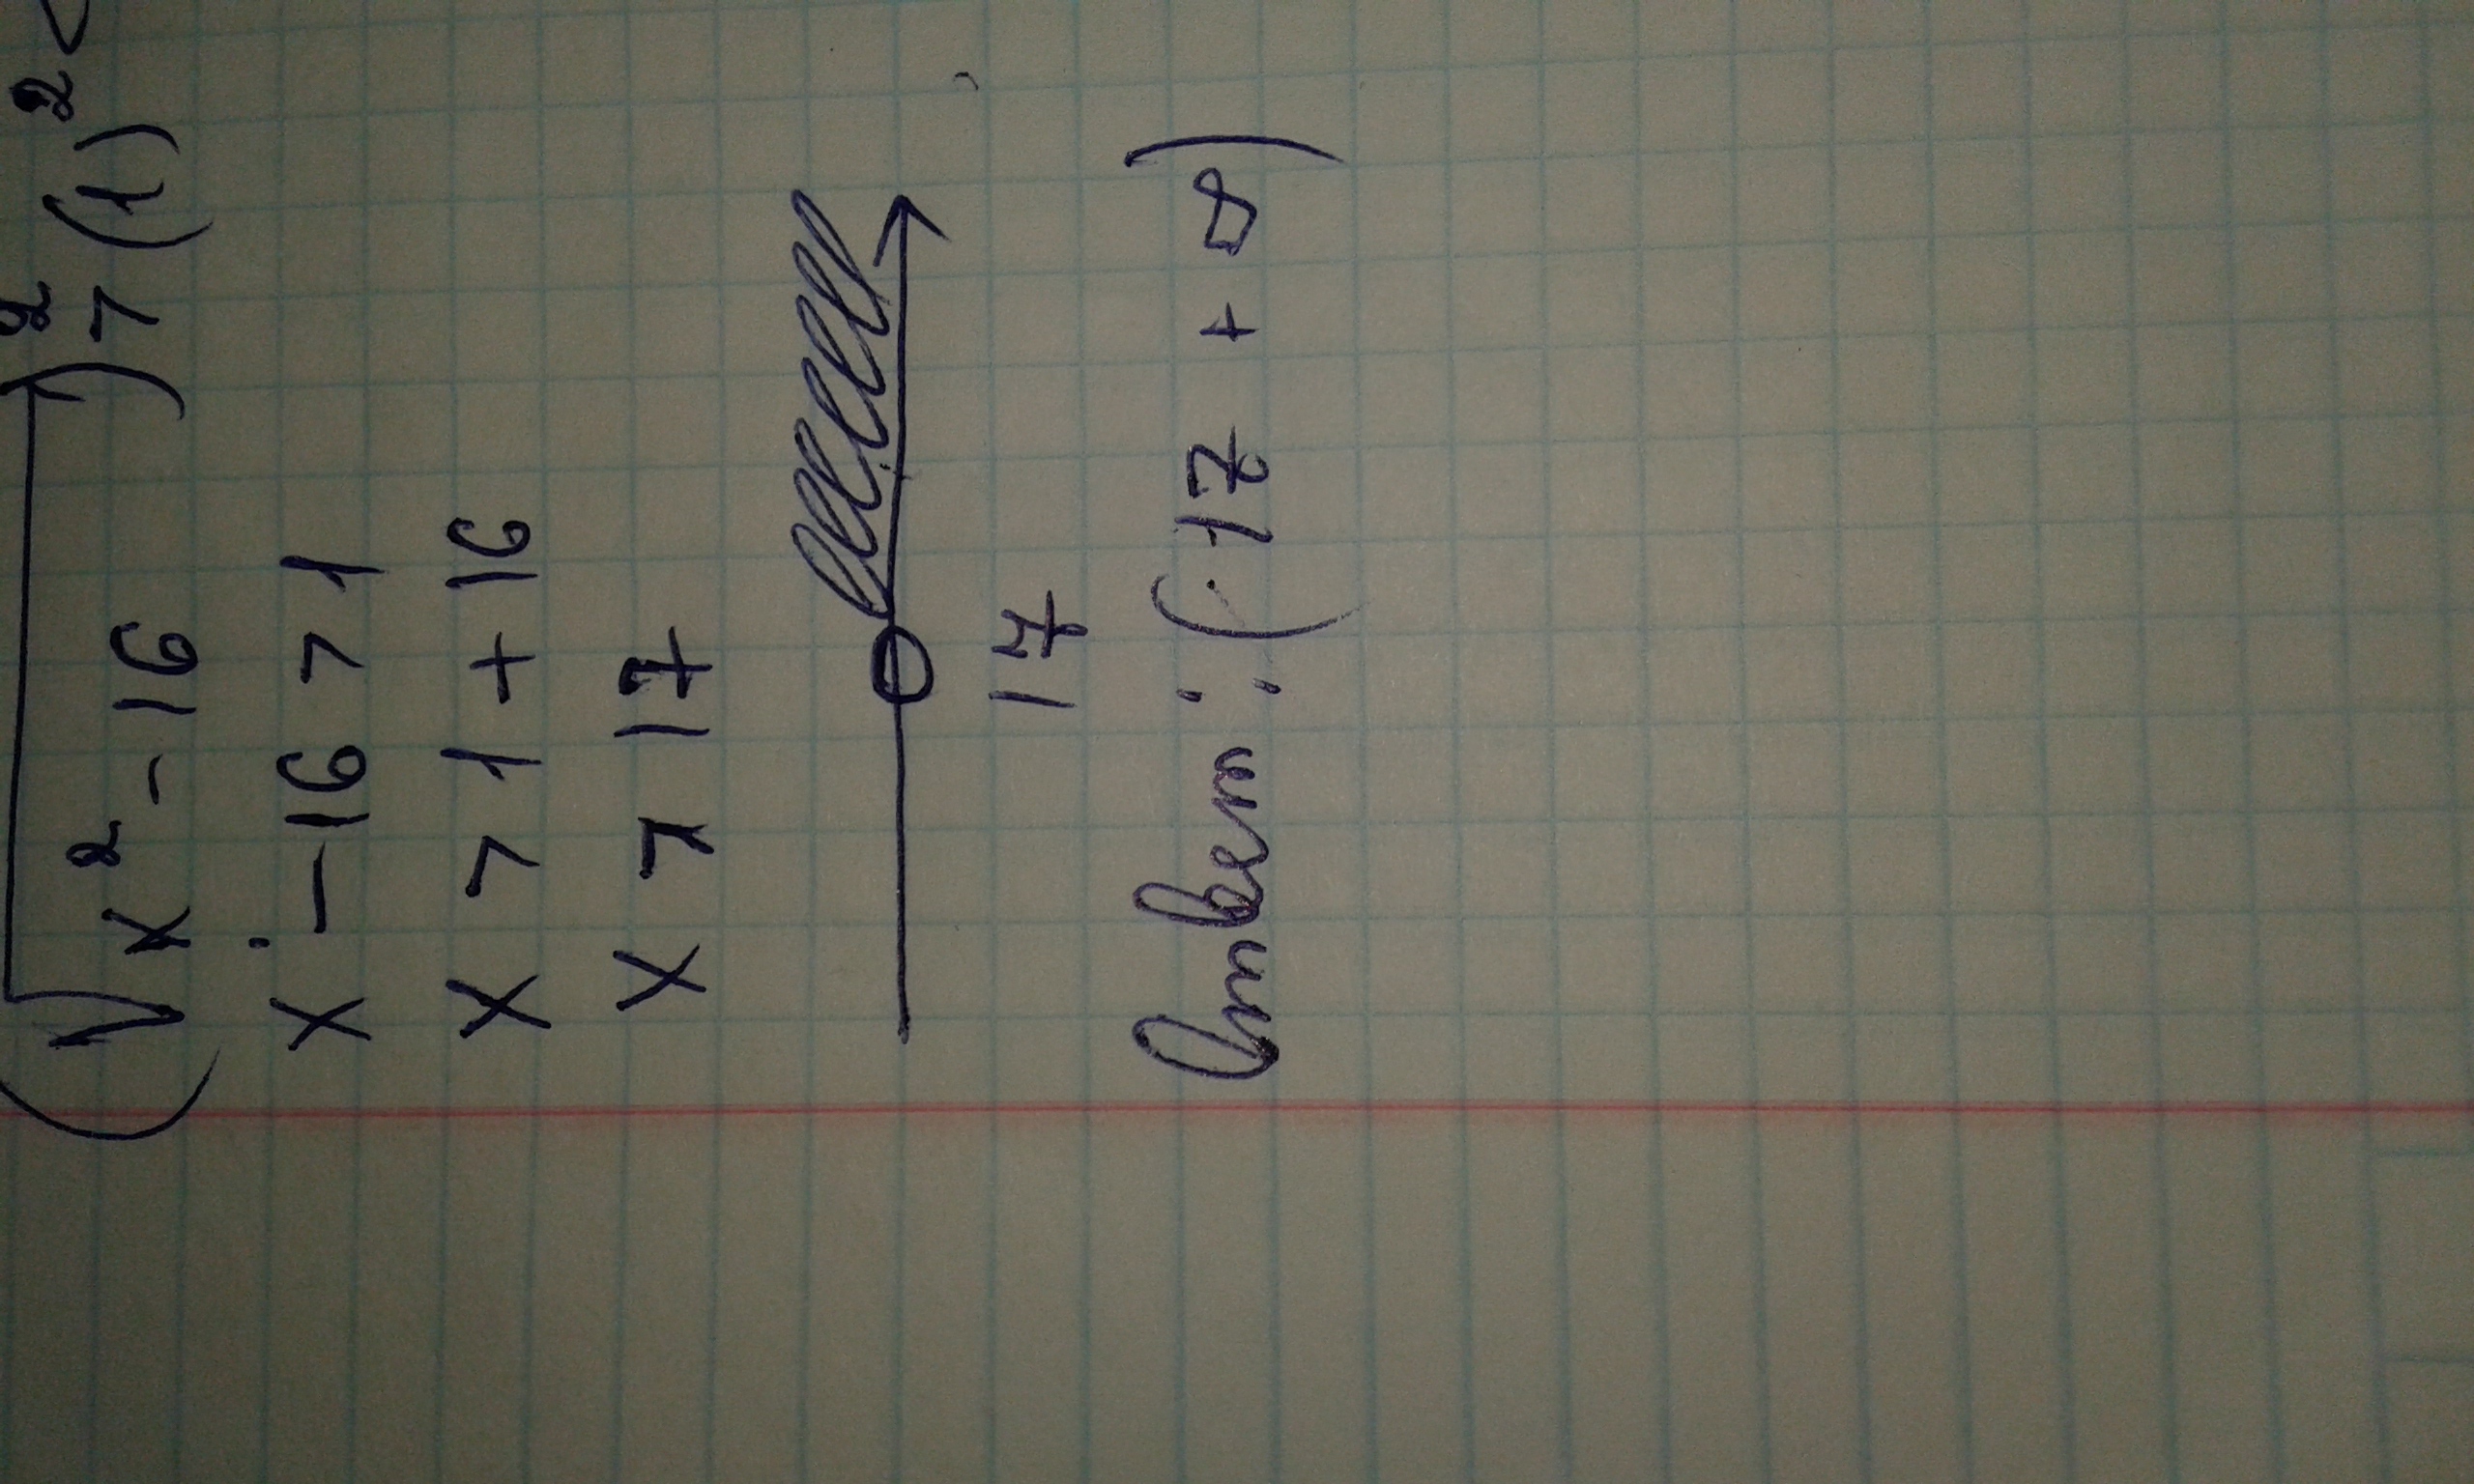 (√x² - 16)² > (1)² <
x - 16 > 1
x > 1 + 16
x > 17
17
Ответ: (17 + ∞)